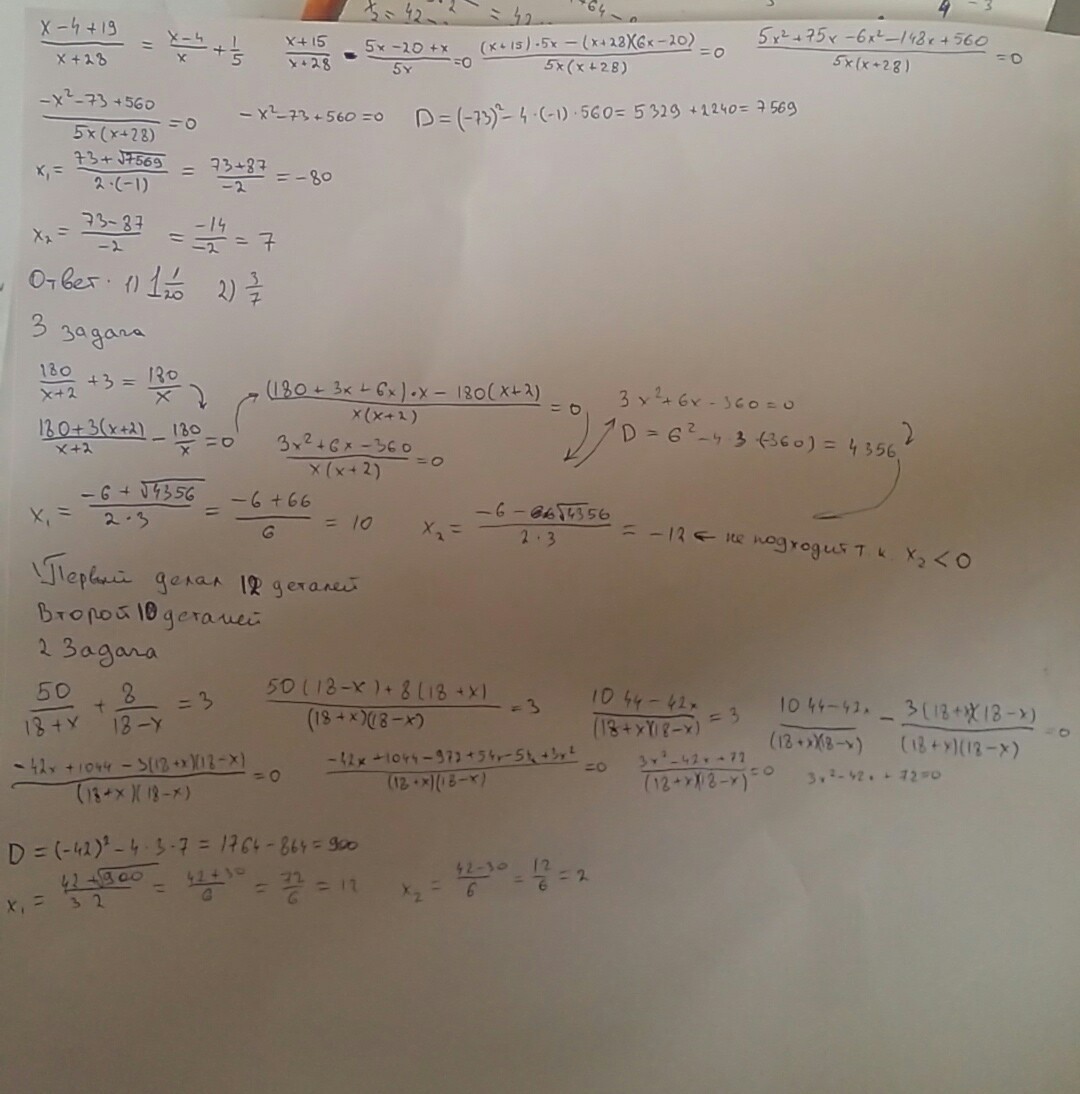 x₂ = 42 = 42 64 4 −3
(x−4+19)/(x+28) = (x−4)/x + 1/5   (x+15)/(x+28) - (5x−20+x)/(5x) =0   ((x+15)·5x − (x+28)(6x−20))/(5x(x+28)) =0   (5x²+75x−6x²−148x+560)/(5x(x+28)) =0
(−x²−73+560)/(5x(x+28)) =0   −x²−73+560=0   D=(−73)²−4·(−1)·560=5329+2240=7569
x₁= (73+√7569)/(2·(−1)) = (73+87)/(−2) = −80
x₂ = (73−87)/(−2) = (−14)/(−2) = 7
Ответ: 1) 1 1/20   2) 3/7
3 задача
180/(x+2) +3 = 180/x   ((180+3x+6x)·x−180(x+2))/(x(x+2)) =0   3x²+6x−360=0
(180+3(x+2))/(x+2) − 180/x =0   (3x²+6x−360)/(x(x+2)) =0   D = 6²−4·3·(−360) = 4356
x₁ = (−6+√4356)/(2·3) = (−6+66)/6 = 10   x₂ = (−6−√4356)/(2·3) = −12 ← не подходит т.к. x₂<0
Первый делал 12 деталей
Второй 10 деталей
2 Задача
50/(18+x) + 8/(18−x) = 3   (50(18−x)+8(18+x))/((18+x)(18−x)) =3   (1044−42x)/((18+x)(18−x)) = 3   (1044−42x)/((18+x)(18−x)) − (3(18+x)(18−x))/((18+x)(18−x)) =0
(−42x+1044−3(18+x)(18−x))/((18+x)(18−x)) =0   (−42x+1044−972+54x−54x+3x²)/((18+x)(18−x)) =0   (3x²−42x+72)/((18+x)(18−x)) =0   3x²−42x+72=0
D = (−42)²−4·3·7 = 1764−864=900
x₁ = (42+√900)/(3 2) = (42+30)/6 = 72/6 = 12   x₂ = (42−30)/6 = 12/6 = 2